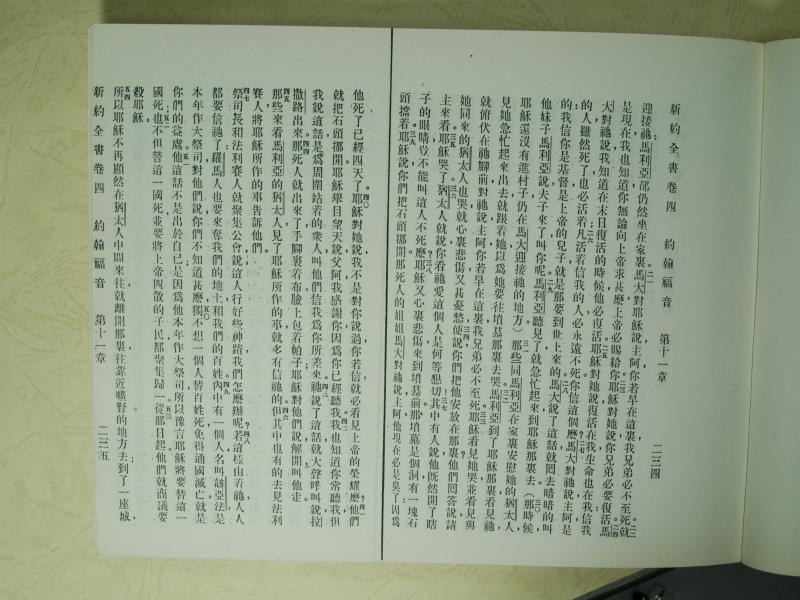 新約全書卷四　約翰福音　第十一章　二三四
迎接祂馬利亞卻仍然坐在家裏馬大對耶穌說主阿你若早在這裏我兄弟必不至死就
是現在我也知道你無論向上帝求甚麼上帝必賜給你耶穌對她說你兄弟必要復活馬
大對祂說我知道在末日復活的時候他必復活耶穌對她說復活在我生命也在我信我
的人雖然死了也必活着凡活着信我的人必永遠不死你信這個麼馬大對祂說主阿是
的我信你是基督是上帝的兒子就是那要到世上來的馬大說了這話就囘去暗暗的叫
他妹子馬利亞說夫子來了叫你呢馬利亞聽見了就急忙起來到耶穌那裏去（那時候
耶穌還沒有進村子仍在馬大迎接祂的地方）那些同馬利亞在家裏安慰她的猶太人
見她急忙起來出去就跟着她以爲她要往墳墓那裏去哭馬利亞到了耶穌那裏看見祂
就俯伏在祂腳前對祂說主阿你若早在這裏我兄弟必不至死耶穌看見她哭並看見與
她同來的猶太人也哭就心裏悲傷又甚憂愁便說你們把他安放在那裏他們囘答說請
主來看耶穌哭了猶太人就說你看祂愛這個人是何等懇切其中有人說他旣然開了瞎
子的眼睛豈不能叫這人不死麼耶穌又心裏悲傷來到墳墓前那墳墓是個洞有一塊石
頭擋着耶穌說你們把石頭挪開那死人的姐姐馬大對祂說主阿他現在必是臭了因爲
他死了已經四天了耶穌對她說我不是對你說過你若信就必看見上帝的榮耀麼他們
就把石頭挪開耶穌舉目望天說父阿我感謝你因爲你已經聽我我也知道你常聽我但
我說這話是爲周圍站着的衆人叫他們信我爲你所差來祂說了這話就大聲呼叫說拉
撒路出來那死人就出來了手腳裏着布臉上包着帕子耶穌對他們說解開叫他走
那些來看馬利亞的猶太人見了耶穌所作的事就多有信祂的但其中也有的去見法利
賽人將耶穌所作的事吿訴他們
祭司長和法利賽人就聚集公會說這人行好些神蹟我們怎麼辦呢若這樣由着祂人人
都要信祂了羅馬人也要來奪我們的地土和我們的百姓內中有一個人名叫該亞法是
本年作大祭司對他們說你們不知道甚麼獨不想一個人替百姓死免得通國滅亡就是
你們的益處他這話不是出於自已是因爲他本年作大祭司所以豫言耶穌將要替這一
國死也不但替這一國死並要將上帝四散的子民都聚集歸一從那日起他們就商議要
殺耶穌
所以耶穌不再顯然在猶太人中間來往就離開那裏往靠近曠野的地方去到了一座城
新約全書卷四　約翰福音　第十一章　二三五